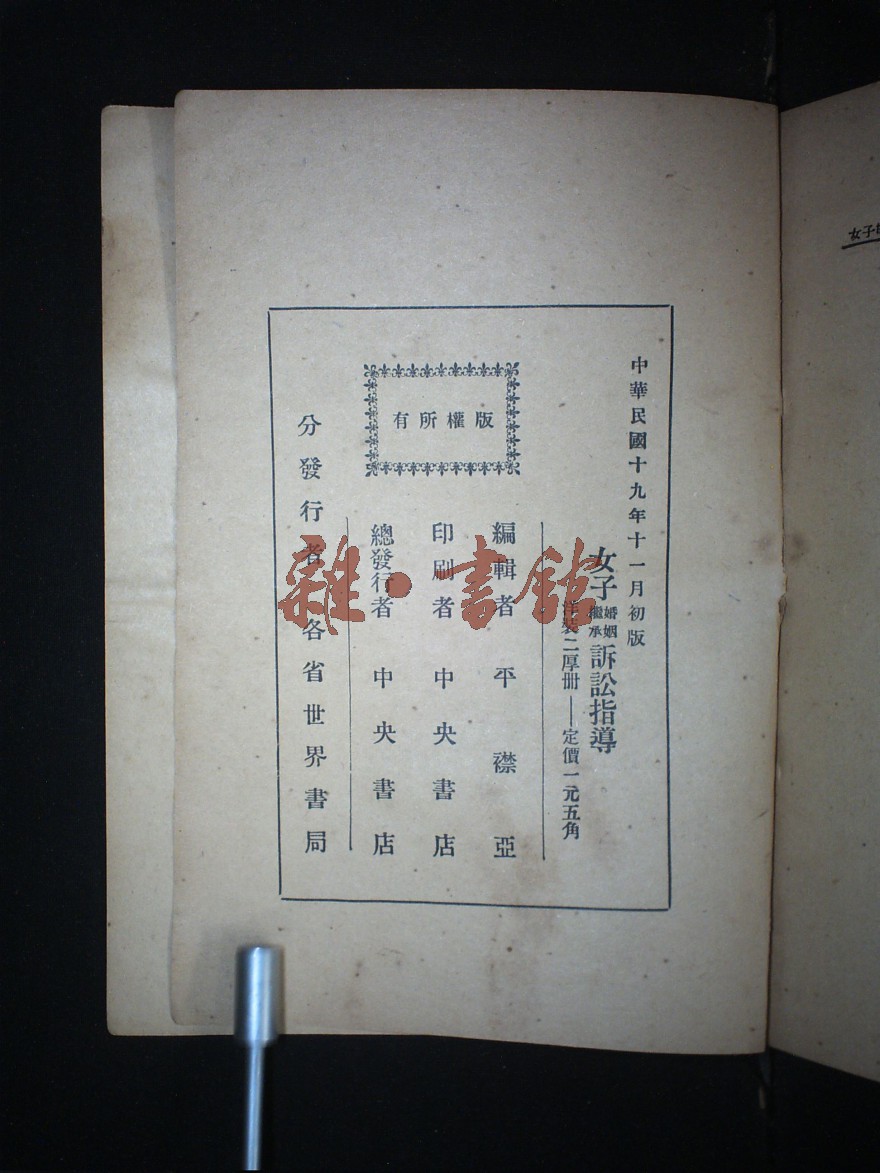 中華民國十九年十一月初版
女子婚姻繼承訴訟指導
洋裝二厚册——定價一元五角
版權所有
編輯者 平襟亞
印刷者 中央書店
總發行者 中央書店
分發行者 各省世界書局
雜·書館